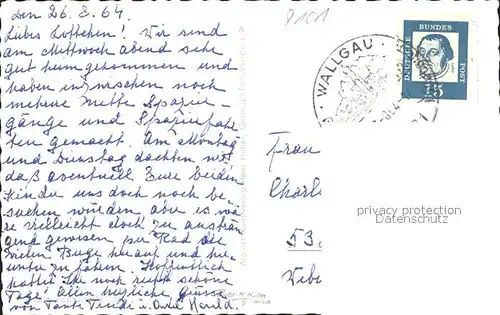 den 26. 8. 64.
Liebes Lottchen! Wir sind
am Mittwoch abend sehr
gut heimgekommen und
haben inzwischen noch
mehrere nette Spazier-
gänge und Spazierfahr
ten gemacht. Am Montag
und Dienstag dachten wir
daß eventuell Eure beiden
Kinder uns doch noch be-
suchen würden, aber es wä
re vielleicht doch zu anstren
gend gewesen per Rad die
vielen Berge herauf und her-
unter zu fahren. Hoffentlich
hattet Ihr noch recht schöne
Tage! Allen herzliche Grüsse
von Tante Trudi u. Onkel Harald.
WALLGAU
DEUTSCHE BUNDES POST
15
Frau
Charl
53
privacy protection
DATENSCHUTZ